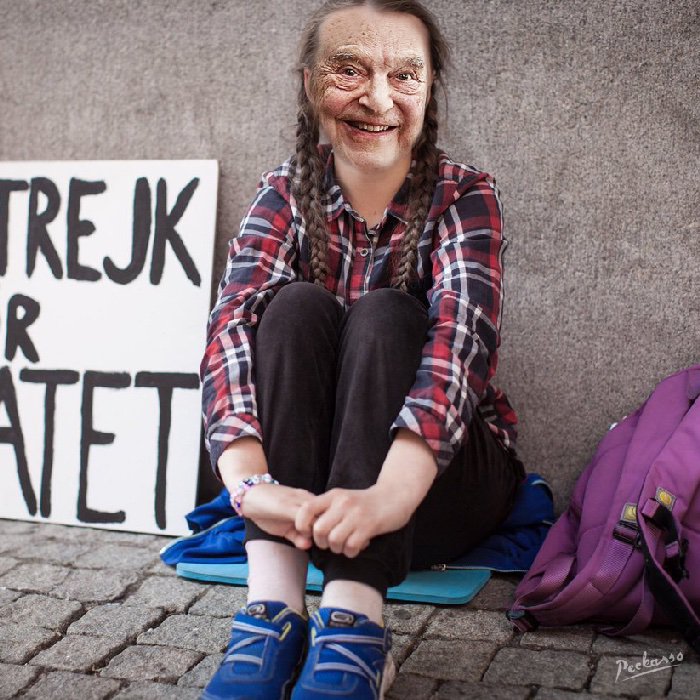 TREJK
ÖR
ATET
Peckasso